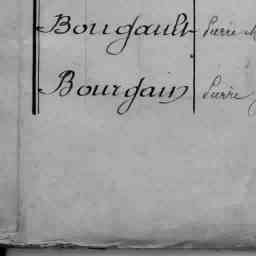 Bougault Pierre
Bourgain Pierre